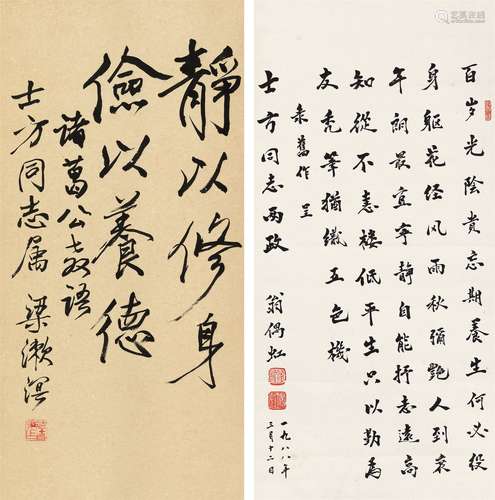 靜以修身
儉以養德
諸葛公教語
士方同志属 梁漱溟
百岁光陰貴忘期養生何必役
身軀花经风雨秋彌艷人到衰
年詞最宜寧靜自能抒志遠高
知從不恚楼低平生只以勤為
友秃筆猶織五色機
录舊作 呈
士方同志两政
翁偶虹
一九八八年
三月十二日